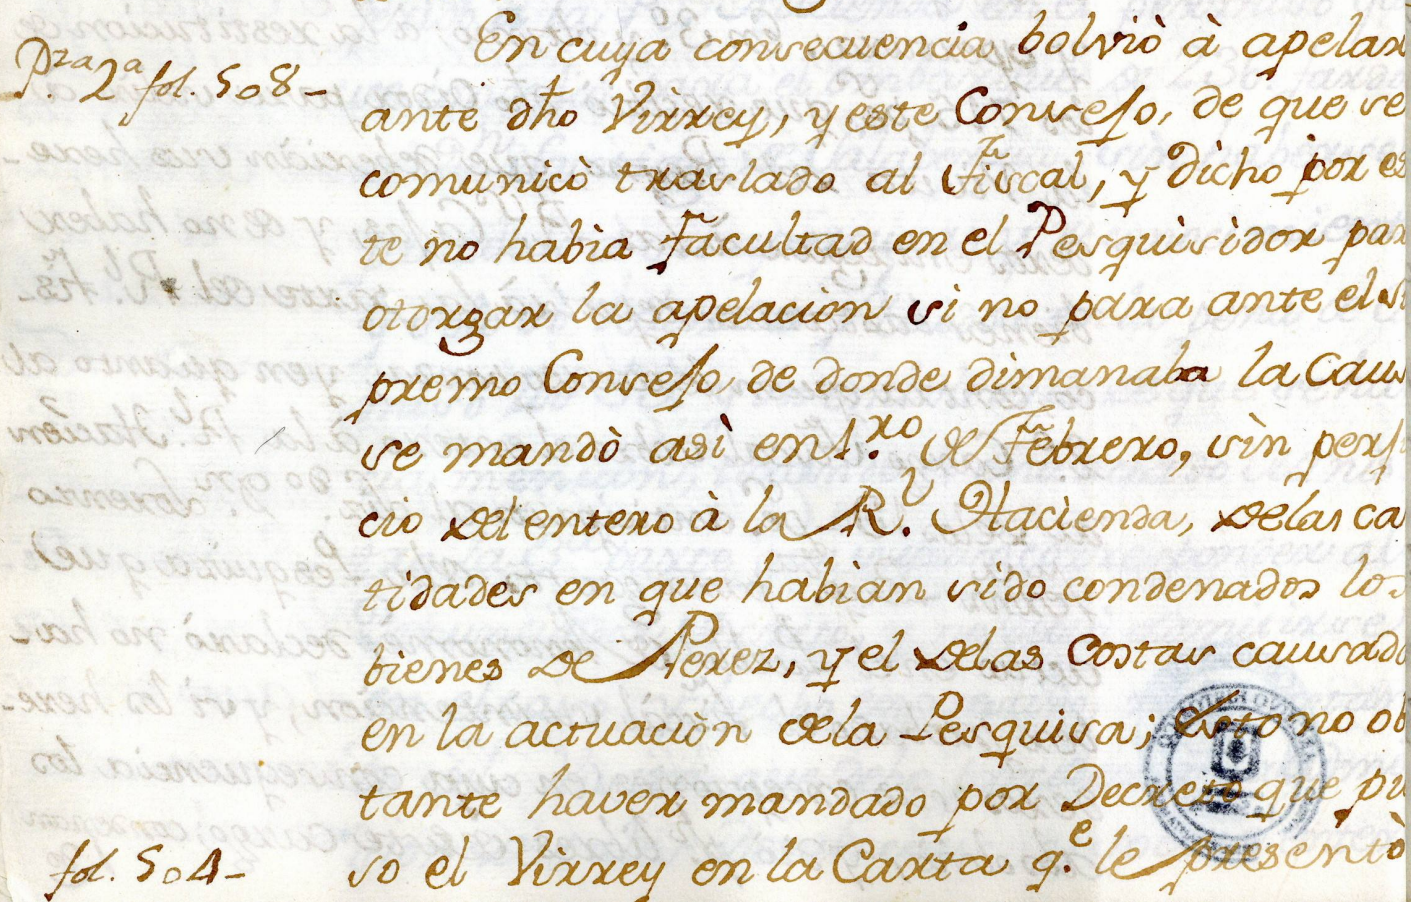 En cuya consecuencia bolviò à apelar
Pza. 2a fol. 508-
ante dho Virrey, y este Consejo, de que se
comunicò traslado al Fiscal, y dicho por es
te no habia Facultad en el Pesquisidor par
otorgar la apelacion si no para ante el su
premo Consejo de donde dimanaba la Caus
se mandò asi en 1.ro de Febrero, sin perju
cio del entero à la Rl. Hacienda, de las ca
tidades en que habian sido condenados los
bienes de Perez, y el de las Costas causado
en la actuaciòn de la Pesquisa; esto no ob
tante haver mandado por Decreto que pu
fol. 504-
so el Virrey en la Carta q.e le presentò